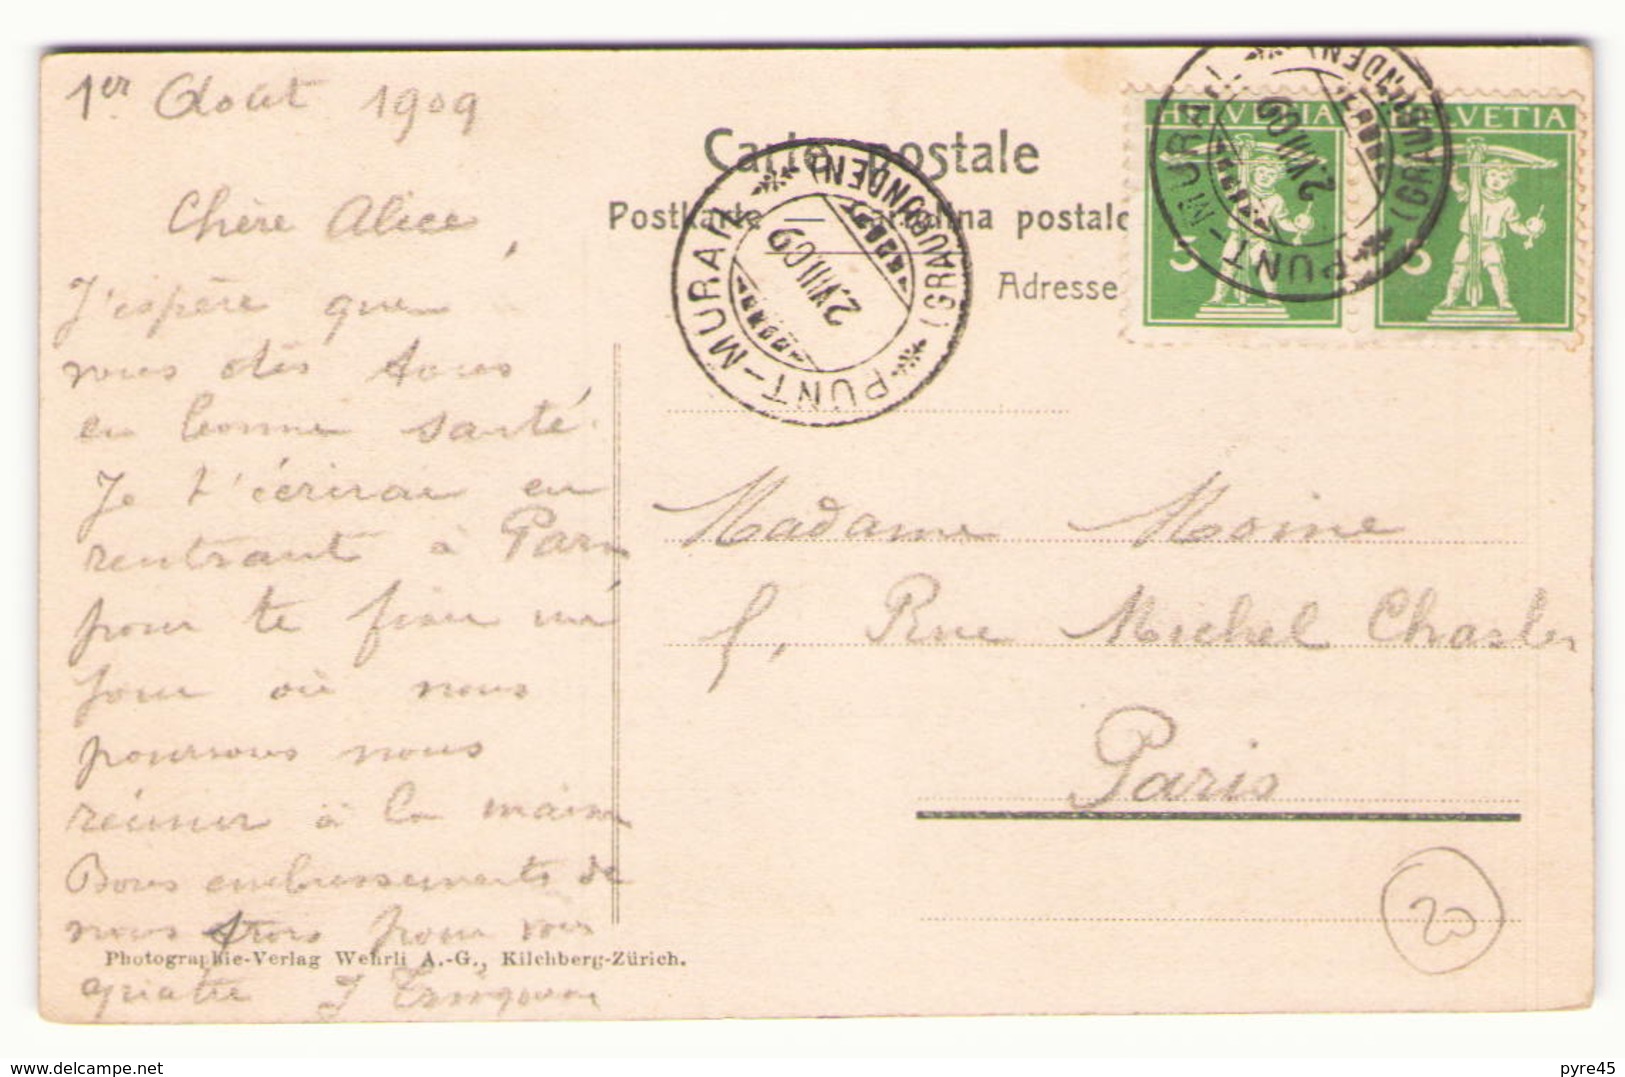 1er Août 1909
Chère Alice,
J'espère que
vous êtes tous
en bonne santé.
Je t'écrirai en
rentrant à Paris
pour te fixer un
jour où nous
pourrons nous
réunir à la maison
Bons embrassements de
nous trois pour vous
quatre J
Photographie-Verlag Wehrli A.-G., Kilchberg-Zürich.
Carte postale
Postkarte — Cartolina postale
Adresse
PUNT-MURAGL (GRAUBÜNDEN)
2.VIII.09
HELVETIA
5
HELVETIA
5
PUNT-MURAGL (GRAUBÜNDEN)
2.VIII.09
Madame Moine
5, Rue Michel Chasles
Paris
20
pyre45